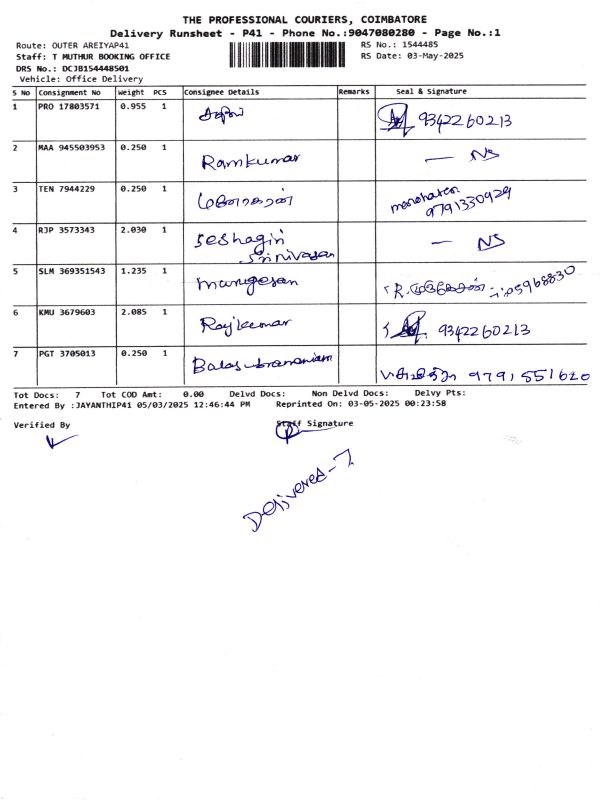 THE PROFESSIONAL COURIERS, COIMBATORE
Delivery Runsheet - P41 - Phone No.:9047080280 - Page No.:1
Route: OUTER AREIYAP41 RS No.: 1544485
Staff: T MUTHUR BOOKING OFFICE RS Date: 03-May-2025
DRS No.: DCJB154448501
Vehicle: Office Delivery
S No Consignment No Weight PCS Consignee Details Remarks Seal & Signature
1 PRO 17803571 0.955 1 9342260213
2 MAA 945503953 0.250 1 Ramkumar — NS
3 TEN 7944229 0.250 1 மனோகரன் manoharan
9791330929
4 RJP 3573343 2.030 1 Seshagiri — NS
Srinivasan
5 SLM 369351543 1.235 1 murugesan R.முருகேசன்
6 KMU 3679603 2.085 1 Rajkumar 9342260213
7 PGT 3705013 0.250 1 Balasubramaniam 9791551620
Tot Docs: 7 Tot COD Amt: 0.00 Delvd Docs: Non Delvd Docs: Delvy Pts:
Entered By :JAYANTHIP41 05/03/2025 12:46:44 PM Reprinted On: 03-05-2025 00:23:58
Verified By Staff Signature
Delivered - 7